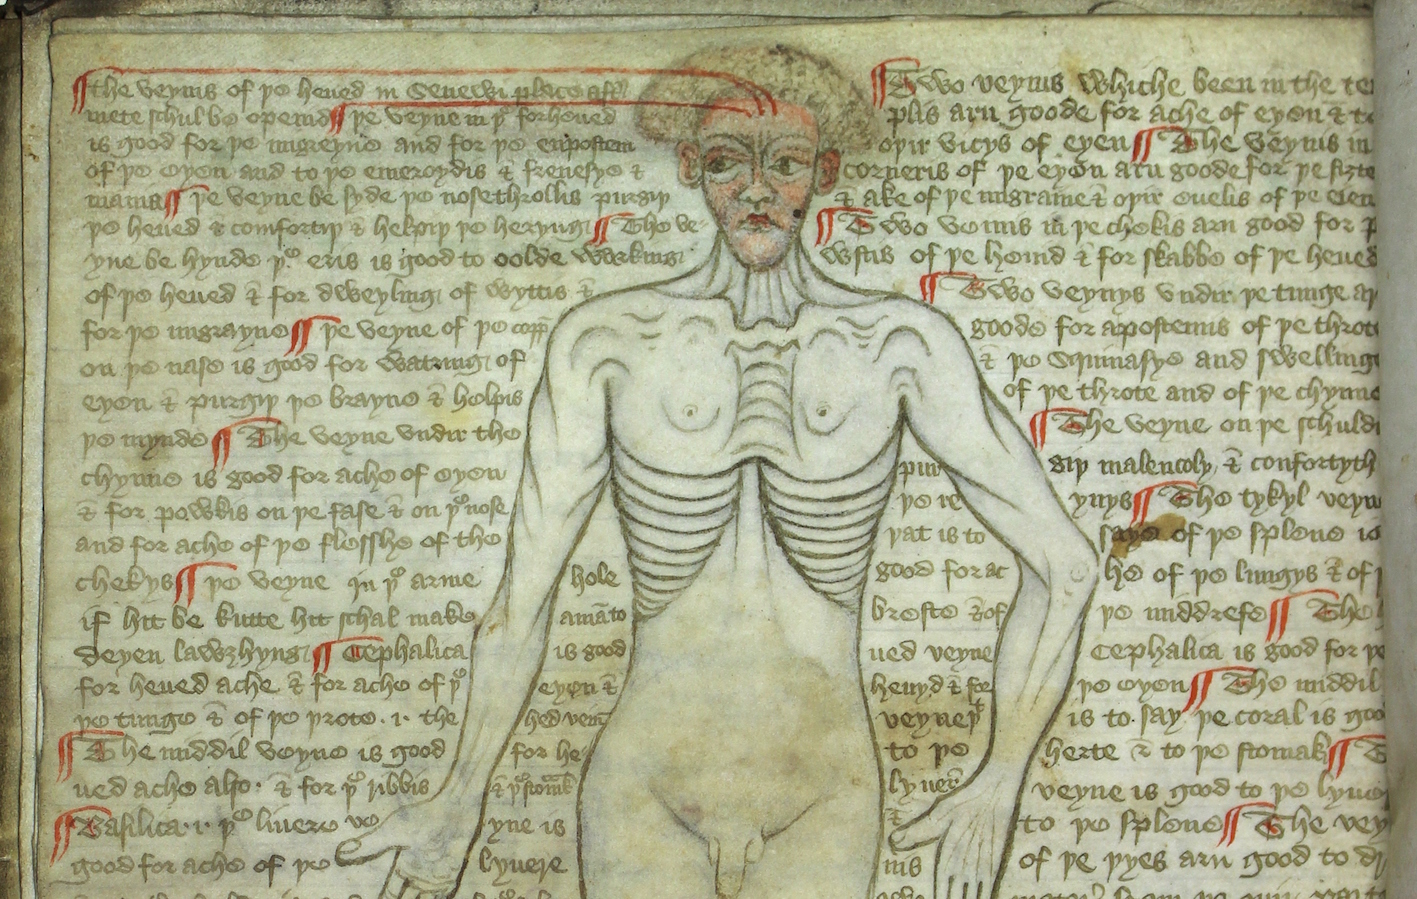 the veynis of þe heued in
mete schul be opened ¶ þe veyne in þe forheued
is good for þe migreyne and for þe enpostem
of þe eyen and to þe emeroydis & frenesye &
mania ¶ þe veyne be syde þe nosethrollis purgiþ
þe heued & comfortiþ & helpiþ þe heryng ¶ The ve-
yne be hynde þe eris is good to oolde werking
of þe heued & for dweyling of wyttis &
for þe migrayne ¶ þe veyne of þe copp
on þe nase is good for watring of
eyen & purgiþ þe brayne & helpis
þe mynde ¶ The veyne vndir the
chynne is good for ache of eyen
& for powkis on þe fase & on þe nose
and for ache of þe flesshe of the
chekys ¶ þe veyne in þe arme hole
if hit be kutte hit schal make a man to
deyen lawzhyng ¶ Cephalica is good
for heued ache & for ache of þe eyen &
þe tunge & of þe þrote .i. the hed vein
¶ The middil veyne is good for he-
ued ache also & for þe ribbis & þe stomak
¶ Basilica .i. þe liuere veyne is
good for ache of þe lyuere
¶ Two veynis whiche been in the te
plis arn goode for ache of eyen & to
oþir vicys of eyen ¶ The veynis in
corneris of þe eyen arn goode for þe sizte
& ake of þe migraine & oþir euelis of þe
¶ Two veinis in þe chekis arn good for þ
wstis of þe heuid & for skabbe of þe heued
¶ Two veynys vndir þe tunge ar
goode for apostemis of þe throte
& þe squinasye and swellinge
of þe throte and of þe chynne
¶ The veyne on þe schuld
pur giþ malencoly & confortyth
þe re ynys ¶ The tykyl veyn
þat is to saye of þe splene is
good for ac he of þe lungys & of
breste & of þe middrefe ¶ The
ued veyne Cephalica is good for þe
heuyd & for þe eyen ¶ The middil
veyne þt is to say þe coral is goo
to þe herte & to þe stomak ¶ T
lyuere veyne is good to þe lyue
& to þe splene ¶ The vey
nis of þe þyes arn good to